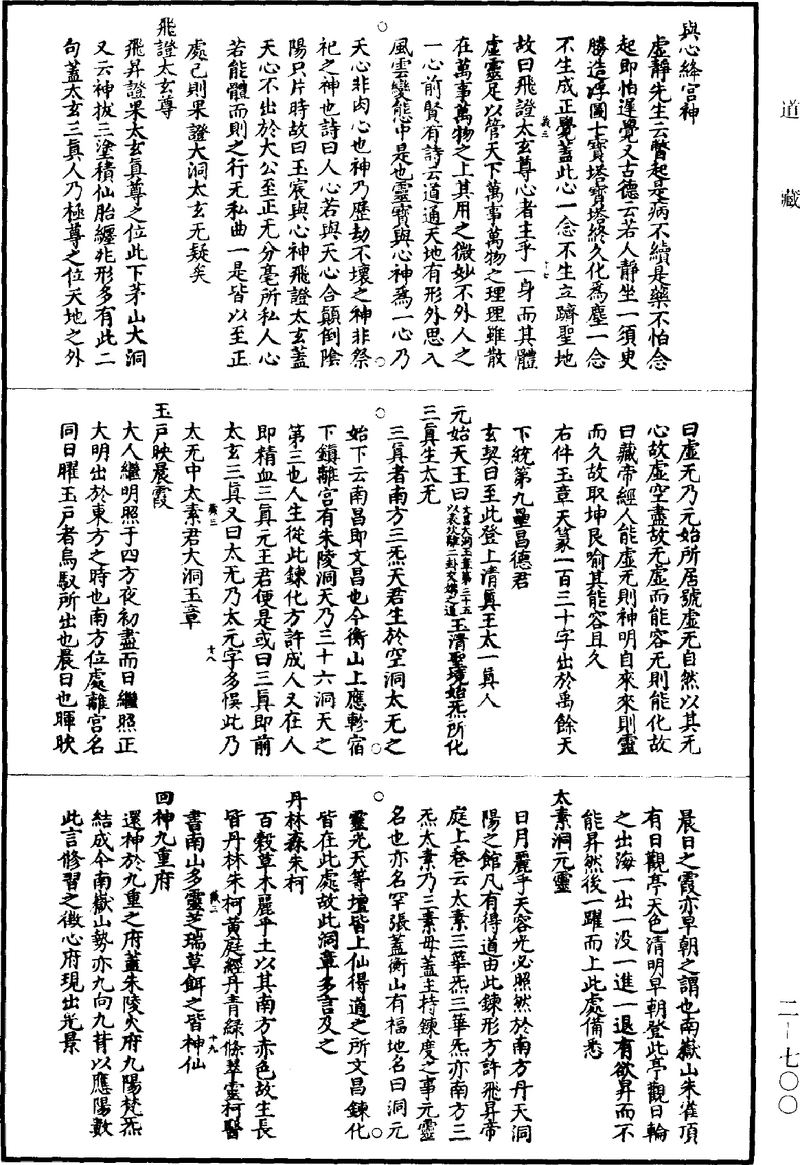 道藏
與心絳宮神
虛靜先生云瞥起是病不續是藥不怕念
起即怕遲覺又古德云若人靜坐一須臾
勝造浮圖七寶塔寶塔終久化為塵一念
不生成正覺蓋此心一念不生立躋聖地
故曰飛證太玄尊心者主乎一身而其體
虛靈足以管天下萬事萬物之理理雖散
在萬事萬物之上其用之微妙不外人之
一心前賢有詩云道通天地有形外思入
風雲變態中是也靈寶與心神為一心乃
天心非肉心也神乃歷劫不壞之神非祭
祀之神也詩曰人心若與天心合顛倒陰
陽只片時故曰玉宸與心神飛證太玄蓋
天心不出於大公至正无分毫所私人心
若能體而則之行无私曲一是皆以至正
處己則果證大洞太玄无疑矣
飛證太玄尊
飛昇證果太玄真尊之位此下茅山大洞
又云神拔三塗積仙胎纏非形多有此二
句蓋太玄三真人乃極尊之位天地之外
曰虛无乃元始所居號虛无自然以其无
心故虛空盡故无虛而能容无則能化故
曰藏帝經人能虛无則神明自來來則靈
而久故取坤艮喻其能容且久
右件玉章天篆一百三十字出於禹餘天
下統第九壘昌德君
玄契曰至此登上清真王太一真人
元始天王曰文昌大洞玉章第二十五以表坎離二卦交媾之道玉清聖境始炁所化
三真生太无
三真者南方三炁天君生於空洞太无之
始下云南昌即文昌也今衡山上應軫宿
下鎮離宮有朱陵洞天乃三十六洞天之
第三也人生從此鍊化方許成人又在人
即精血三真元王君便是或曰三真即前
太玄三真又曰太无乃太元字多悞此乃
太无中太素君大洞玉章
玉戸映晨霞
大人繼明照于四方夜初盡而日繼照正
大明出於東方之時也南方位處離宮名
同日曜玉戸者烏馭所出也晨日也暉映
晨日之霞亦早朝之謂也南嶽山朱雀頂
有日觀亭天色清明早朝登此亭觀日輪
之出海一出一没一進一退有欲昇而不
能昇然後一躍而上此處備悉
太素洞元靈
日月麗乎天容光必照然於南方丹天洞
陽之館凡有得道由此鍊形方許飛昇帝
庭上卷云太素三華炁三華炁亦南方三
炁太素乃三素母蓋主持鍊度之事元靈
名也亦名罕張蓋衡山有福地名曰洞元
靈光天等壇皆上仙得道之所文昌鍊化
皆在此處故此洞章多言及之
丹林森朱柯
百穀草木麗乎土以其南方赤色故生長
皆丹林朱柯黃庭經丹青綠條翠靈柯醫
書南山多靈芝瑞草餌之皆神仙
回神九重府
還神於九重之府蓋朱陵火府九陽梵炁
結成今南嶽山勢亦九向九背以應陽數
此言修習之徴心府現出光景
二-七〇〇